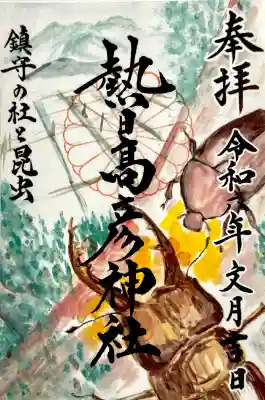 奉拝
令和 年 文月吉日
熱日高彦神社
鎮守の社と昆虫